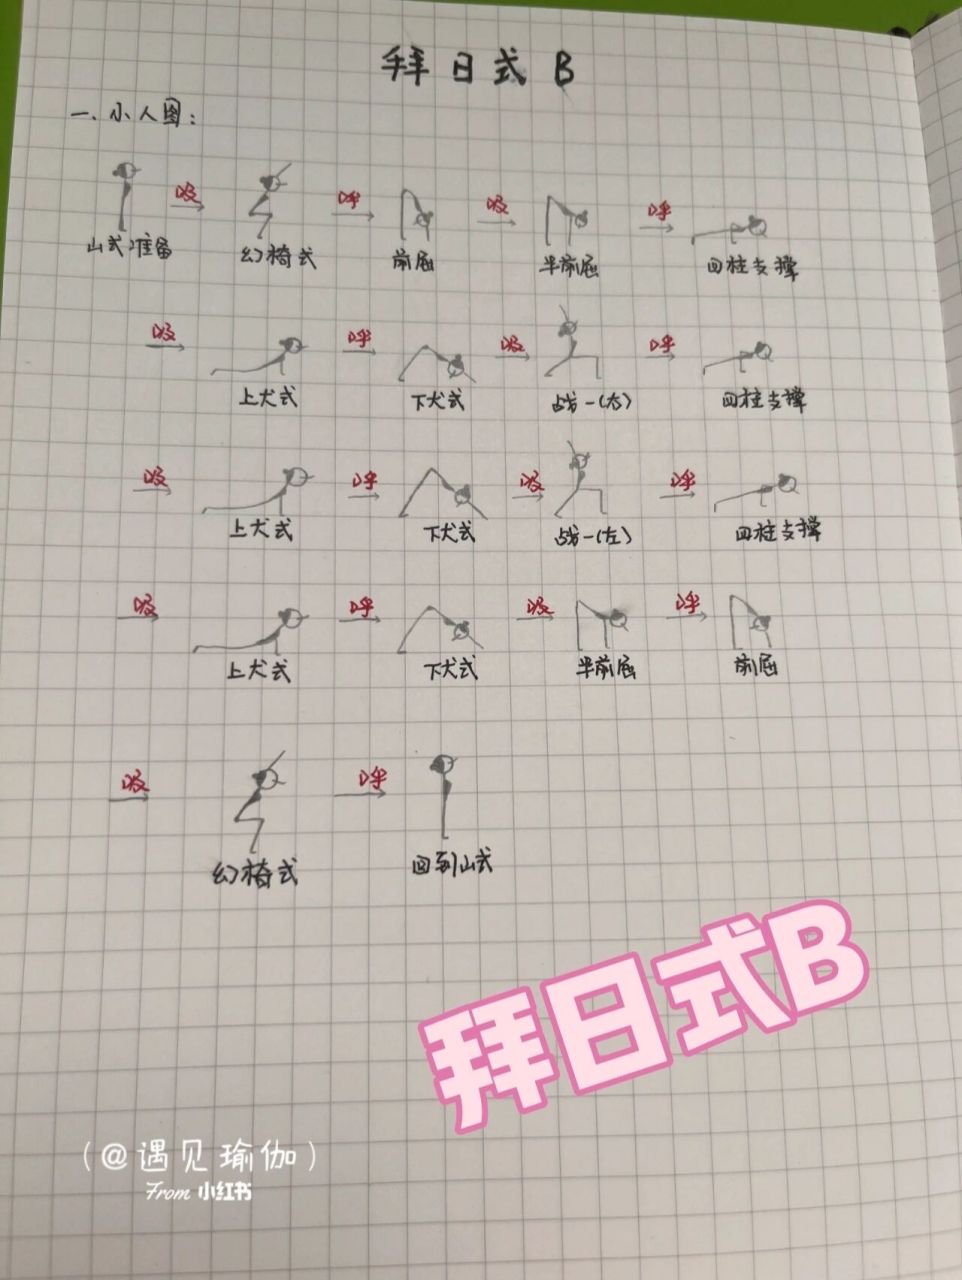 拜日式 B
一、小人图：
吸 呼 吸 呼
山式准备 幻椅式 前屈 半前屈 四柱支撑
吸 呼 吸 呼
上犬式 下犬式 战一(右) 四柱支撑
吸 呼 吸 呼
上犬式 下犬式 战一(左) 四柱支撑
吸 呼 吸 呼
上犬式 下犬式 半前屈 前屈
吸 呼
幻椅式 回到山式
拜日式B
(@遇见瑜伽)
From 小红书